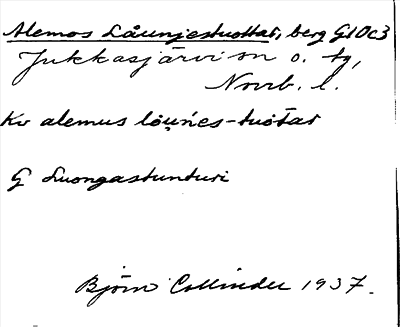 Alemos Låunjestuottar, berg G10c3
Jukkasjärvi sn o. tg,
Norrb. l.
Kv alemus lou̯ńes-tuōtar
G Luongastunturi
Björn Collinder 1937.